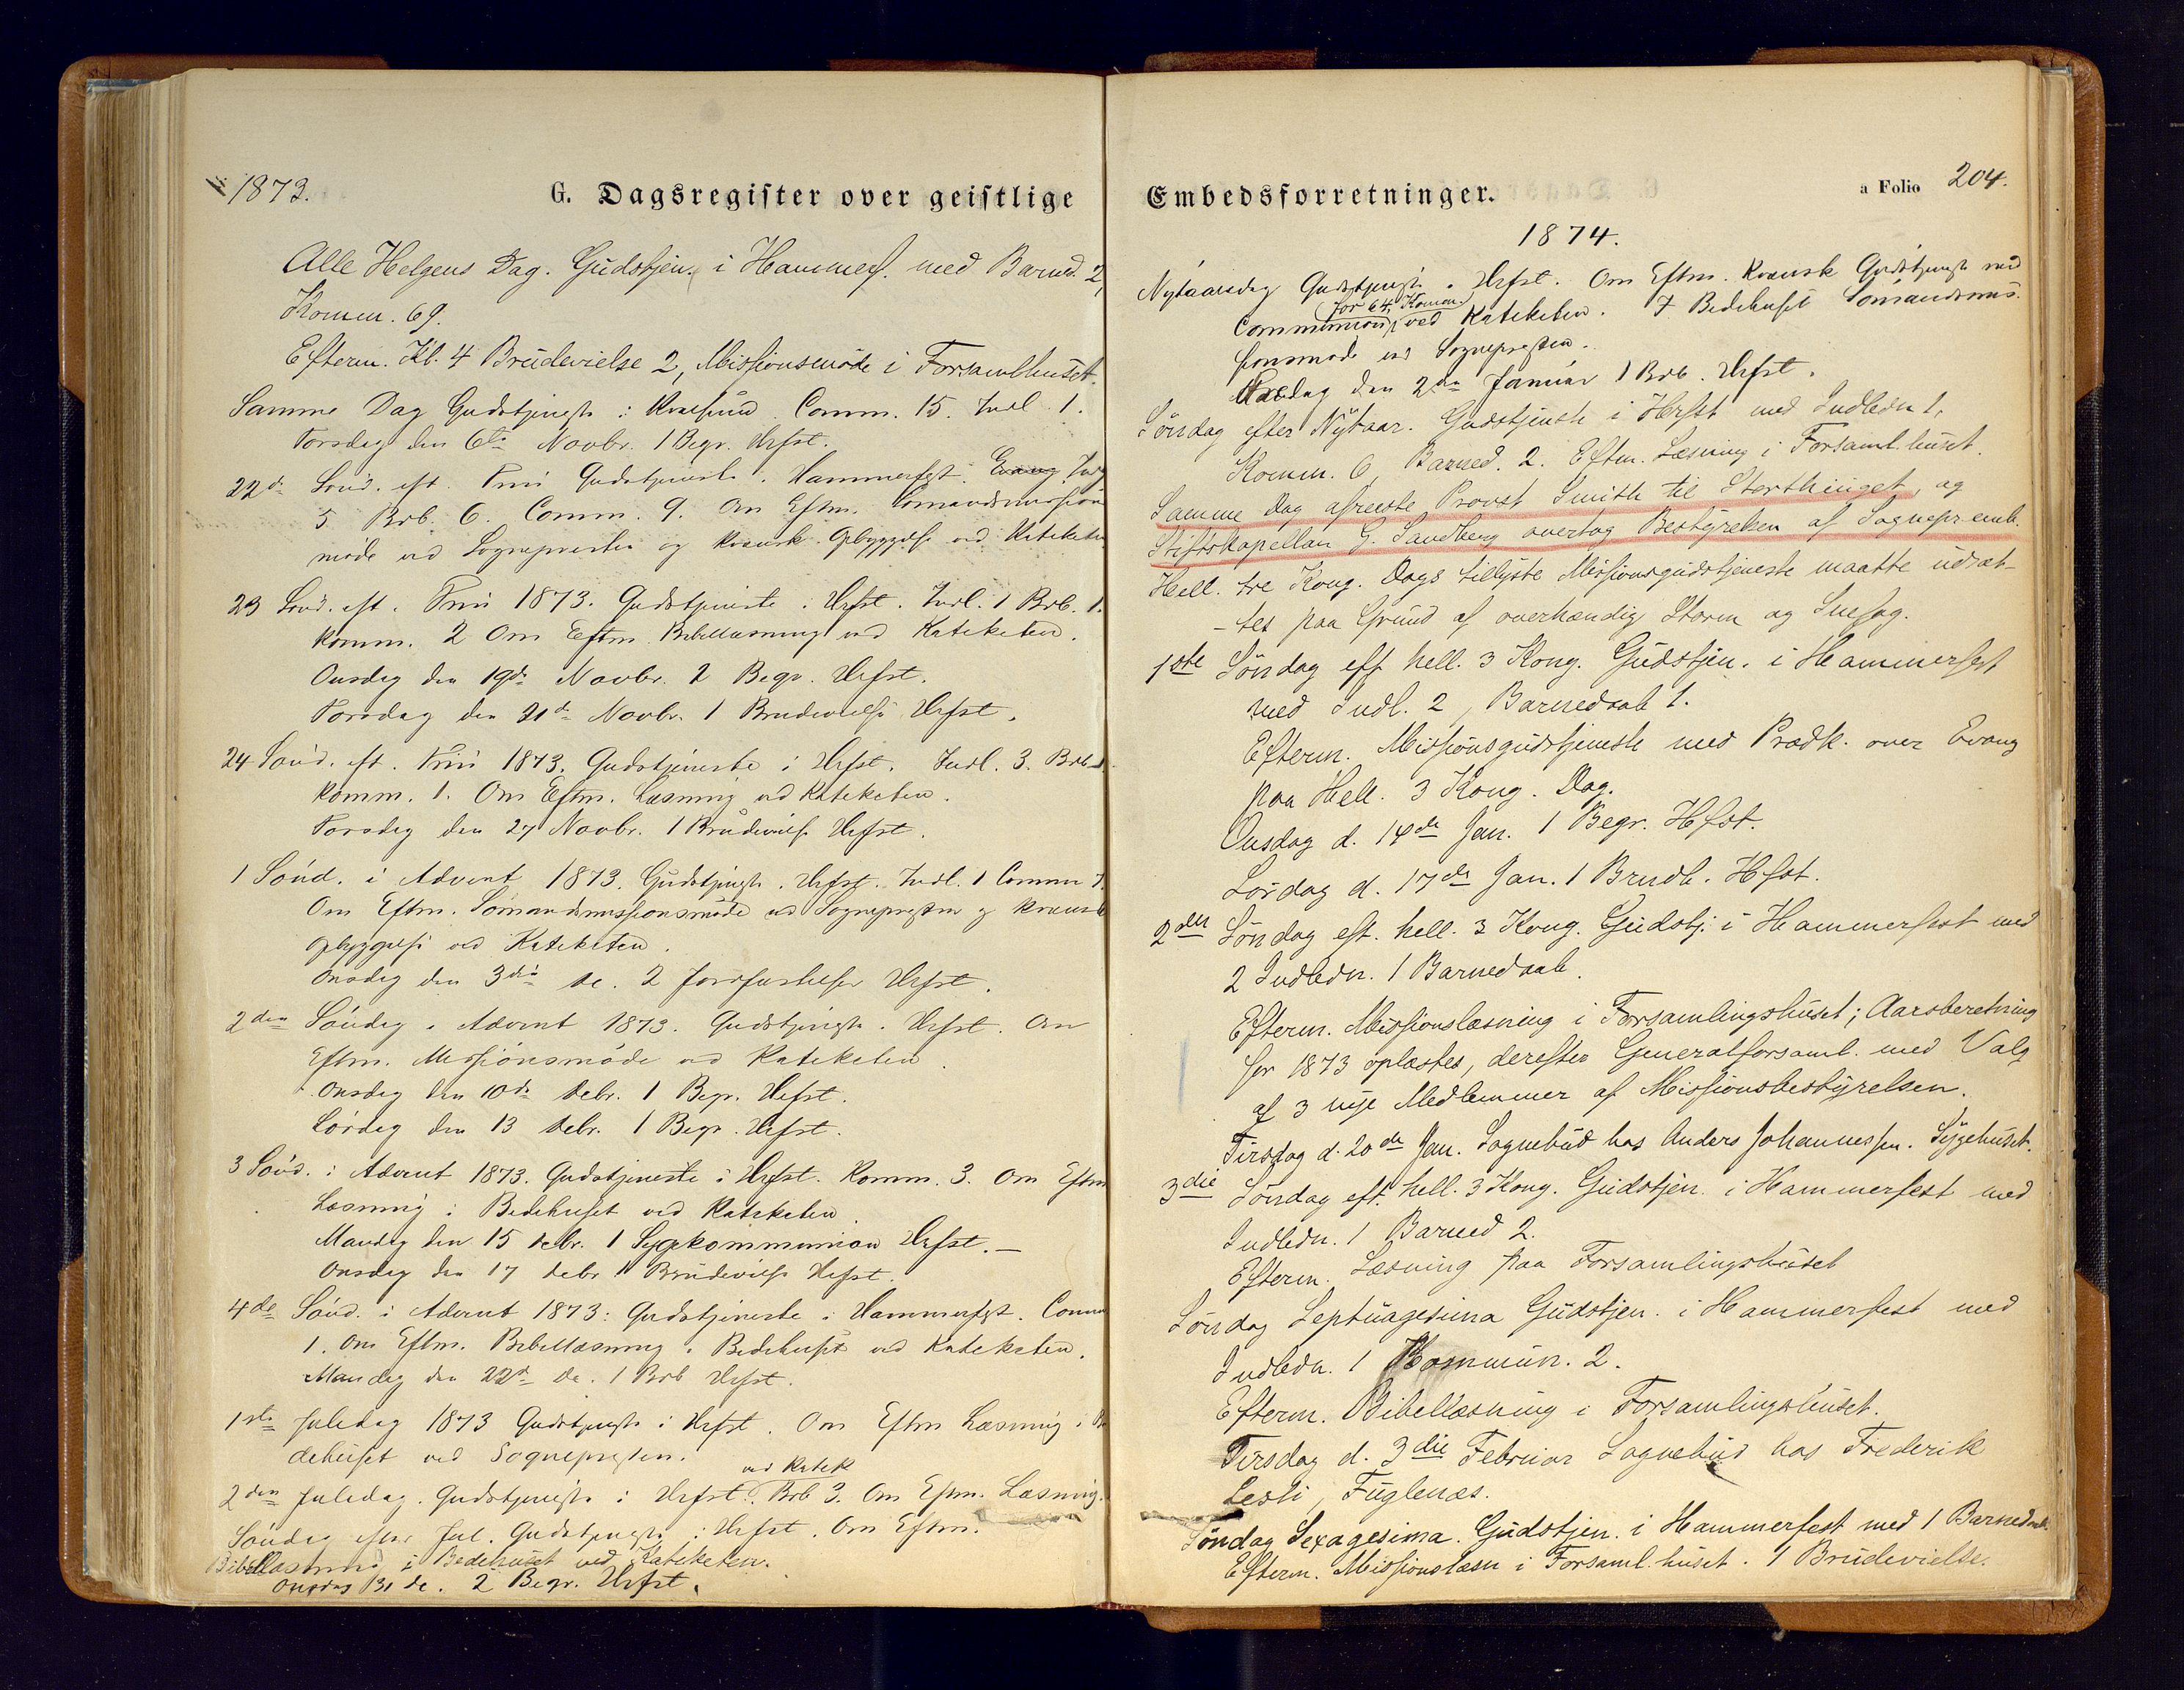 1873.
G. Dagsregister over geistlige
Alle Helgens Dag. Gudstjen. i Hammerf. med Barned. 2,
Komm. 69.
Efterm. Kl. 4 Brudevielse 2, Missionsmöde i Forsamlhuset.
Samme Dag Gudstjeneste i Kvalsund. Comm. 15. Indl. 1.
Torsdag den 6te Novbr. 1 Begr. Hrfst.
22de Sönd. eft. Trin Gudstjeneste i Hammerfest.
5 Brb. 6. Comm. 9. Om Eftm. Sömandsmission
möde ved Sognepresten og kvænsk Opbyggelse ved Kateketen
23 Sönd. eft. Trin 1873. Gudstjeneste i Hrfst. Indl. 1 Brb. 1.
Komm. 2 Om Eftm. Bibellæsning ved Kateketen.
Onsdag den 19de Novbr. 2 Begr. Hrfst.
Torsdag den 21de Novbr. 1 Brudevielse Hrfst.
24 Sönd. eft. Trin 1873. Gudstjeneste i Hrfst. Indl. 3. Brb 1
Komm. 1. Om Eftm. Læsning ved Kateketen.
Torsdag den 27 Novbr. 1 Brudevielse Hrfst.
1 Sönd. i Advent 1873. Gudstjeneste i Hrfst. Indl. 1 Comm 7.
Om Eftm. Sömandsmissionsmöde ved Sognepresten og kvænsk
Opbyggelse ved Kateketen.
Onsdag den 3die De. 2 Jordfæstelser Hrfst.
2den Söndag i Advent 1873. Gudstjeneste i Hrfst. Om
Eftm. Missionsmöde ved Kateketen.
Onsdag den 10de Debr. 1 Begr. Hrfst.
Lördag den 13 Debr. 1 Begr. Hrfst.
3 Sönd. i Advent 1873. Gudstjeneste i Hrfst. Komm. 3. Om Eftm
Læsning i Bedehuset ved Kateketen
Mandag den 15 Debr. 1 Sygekommunion Hrfst. —
Onsdag den 17 Debr 1 Brudevielse Hrfst.
4de Sönd. i Advent 1873. Gudstjeneste i Hammerfest. Comm
1. Om Eftm. Bibellæsning i Bedehuset ved Kateketen.
Mandag den 22de De. 1 Brb Hrfst.
1ste Juledag 1873 Gudstjeneste i Hrfst. Om Eftm Læsning i Be
dehuset ved Sognepresten.
ved Katek
2den Juledag. Gudstjeneste i Hrfst. Brb 3. Om Eftm. Læsning.
Söndag efter Jul. Gudstjeneste i Hrfst. Om Eftm.
Bibellæsning i Bedehuset ved Kateketen.
Onsdag 31 De. 2 Begr. Hrfst.
Embedsforretninger.
a Folio 204.
1874.
Nytaarsdag Gudstjeneste i Hrfst. Om Eftm. Kvænsk Gudstjeneste med
for 64 Komm.
Communion ved Kateketen. I Bedehuset Sömandsmis-
sionsmöde ved Sognepresten.
Fredag den 2den Januar 1 Brb. Hrfst.
Söndag efter Nytaar. Gudstjeneste i Hrfst med Indledn 1,
Komm. 6, Barned. 2. Eftm. Læsning i Forsaml.huset.
Samme Dag afreiste Provst Smith til Storthinget, og
Stiftskapellan G. Sandberg overtog Bestyrelsen af Sognepr.emb.
Hell. tre Kong. Dags tillyste Missionsgudstjeneste maatte udsæt-
-tes paa Grund af overhændig Storm og Snefog.
1ste Söndag eft hell. 3 Kong. Gudstjen. i Hammerfest
med Indl. 2, Barnedaab 1.
Efterm. Missionsgudstjeneste med Prædk. over Evang
paa Hell. 3 Kong. Dag.
Onsdag d. 14de Jan. 1 Begr. Hfst.
Lördag d. 17de Jan. 1 Brudb. Hfst.
2den Söndag eft. hell. 3 Kong. Gudstj. i Hammerfest med
2 Indledn. 1 Barnedaab.
Efterm. Missionslæsning i Forsamlingshuset; Aarsberetning
for 1873 oplæstes, derefter Generalforsaml. med Valg
af 3 nye Medlemmer af Missionsbestyrelsen.
Tirsdag d. 20de Jan. Sognebud hos Anders Johannessen. Sygehuset.
3die Söndag eft. hell. 3 Kong. Gudstjen. i Hammerfest med
Indledn. 1 Barned 2.
Efterm. Læsning paa Forsamlingshuset
Söndag Septuagesima Gudstjen. i Hammerfest med
Indledn. 1 Kommun. 2.
Efterm. Bibellæsning i Forsamlingshuset.
Tirsdag d. 3die Februar Sognebud hos Frederik
Lesti, Fuglenæs.
Söndag Sexagesima. Gudstjen. i Hammerfest med 1 Barnedaab.
Efterm. Missionslæsn i Forsaml.huset. 1 Brudevielse.